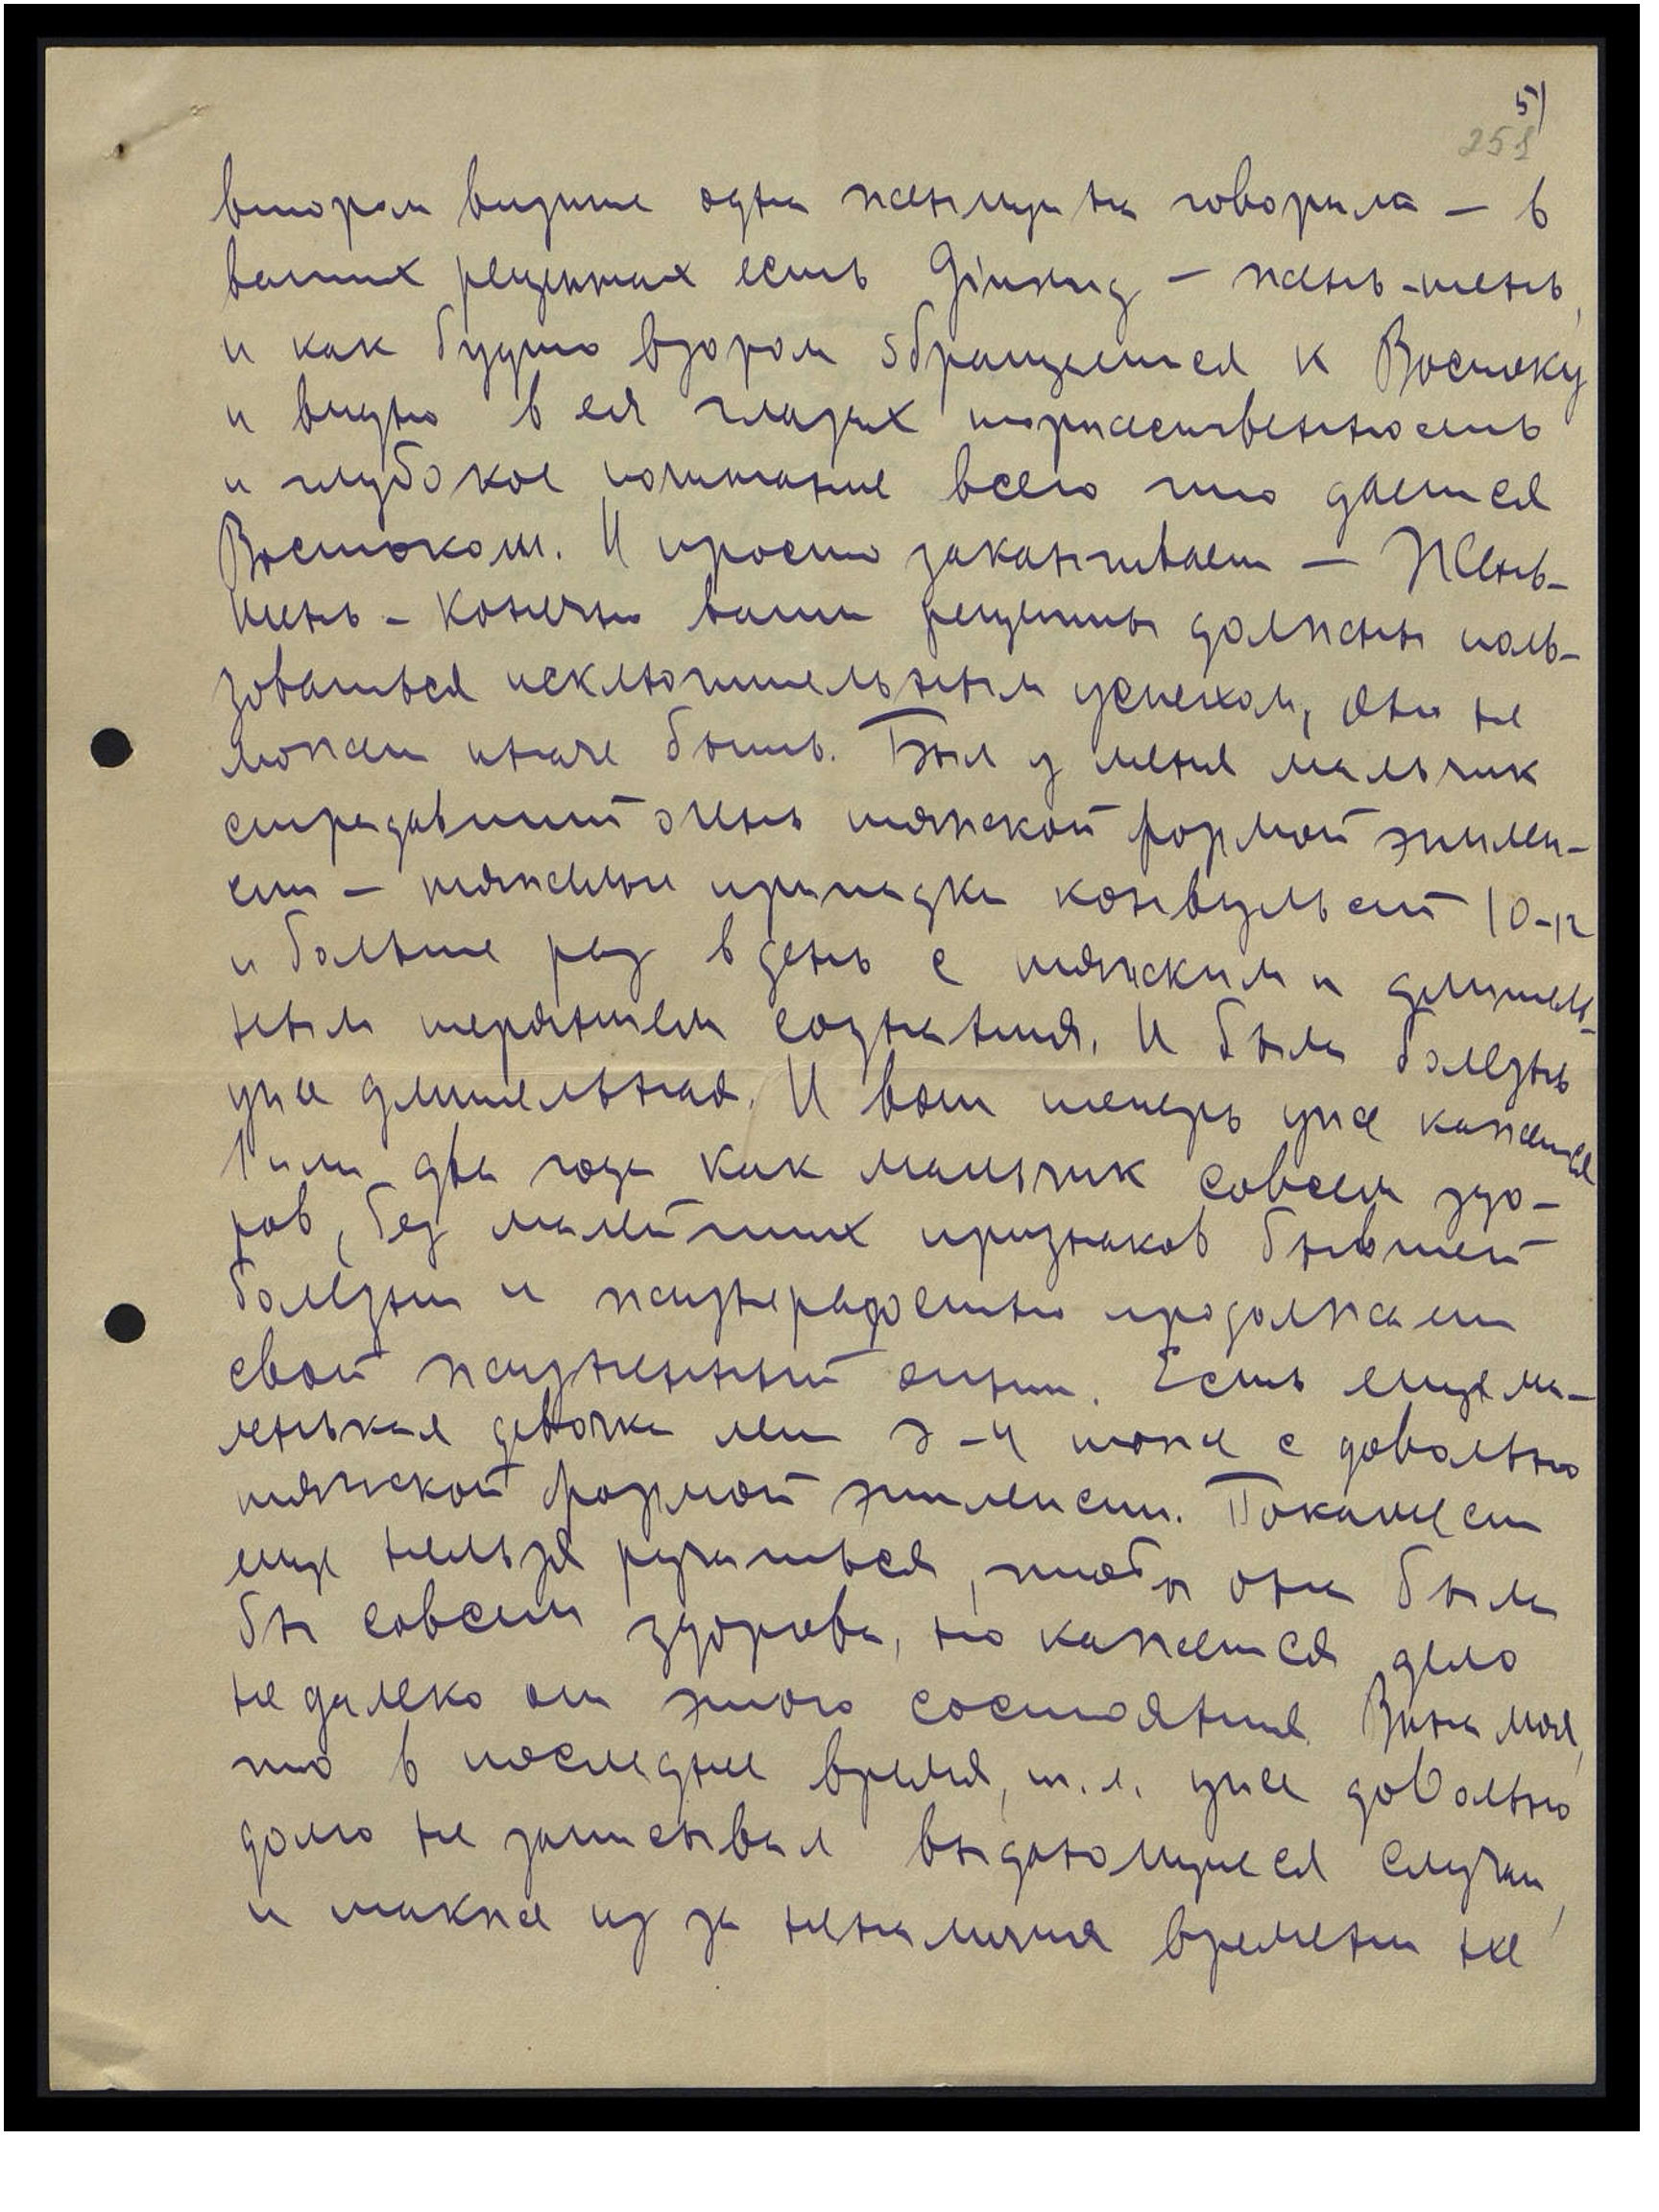 5)
251
втором визите одна женщина говорила — в
ваших рецептах есть Ginseng — жень-шень,
и как будто взором обращается к Востоку
и видно в ея глазах торжественность
и глубокое почитание всего что дается
Востоком. И просто заканчивает — Жень-
шень - конечно ваши рецепты должны поль-
зоваться исключительным успехом, оно не
может иначе быть. Был у меня мальчик
страдавший очень тяжской формой эпилеп-
сии — тяжелые припадки конвульсий 10-12
и больше раз в день с тяжским и длитель-
ным терянием сознания. И была болезнь
уже длительная. И вот теперь уже кажется
1 или два года как мальчик совсем здо-
ров, без малейших признаков бывшей
болезни и жизнерадостно продолжает
свой жизненный опыт. Есть еще ма-
ленькая девочка лет 3-4 тоже с довольно
тяжской формой эпилепсии. Покамест
еще нельзя ручаться, чтобы она была
бы совсем здорова, но кажется дело
не далеко от этого состояния. Вина моя,
что в последнее время, т.е. уже довольно
долго не записывал выдающиеся случаи,
и также из за неналичия времени не